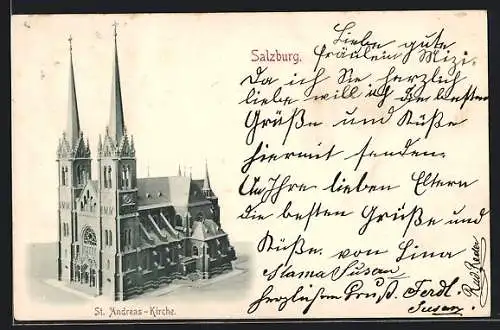 Salzburg.
Liebe gute
Fräulein Mizi.
Da ich Sie herzlich
liebe will ich die besten
Grüße und Küße
hiermit senden.
An Ihre lieben Eltern
die besten Grüße und
Küße. von Lina
Mama Susan
herzlichen Gruß. Ferdl.
St. Andreas-Kirche.